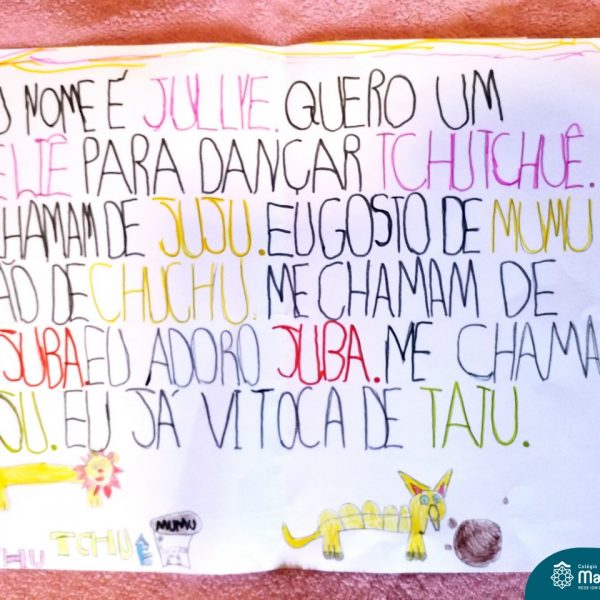 U NOME É JULLYE. QUERO UM
PARA DANÇAR TCHUTCHUÊ.
HAMAM DE JUJU. EU GOSTO DE MUMU
ÃO DE CHUCHU. ME CHAMAM DE
JUBA. EU ADORO JUBA. ME CHAMA
JU. EU JÁ VI TOCA DE TAJU.
HU TCHU Ê MUMU
Colégio
Ma
REDE ICM